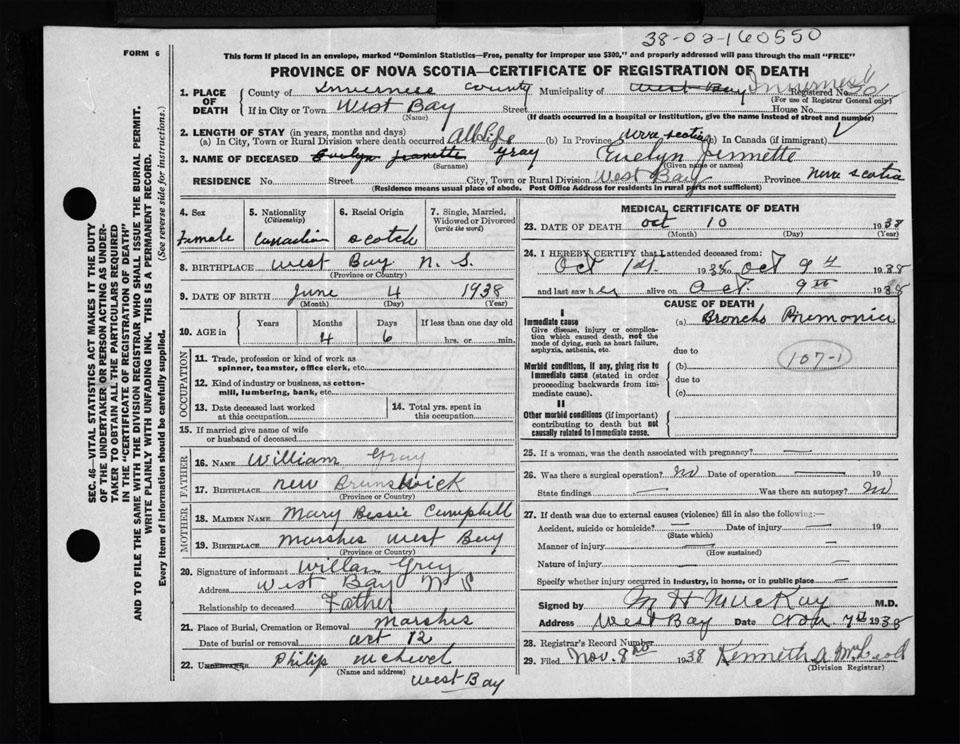 38-02-160550
FORM 6
This form if placed in an envelope, marked "Dominion Statistics—Free, penalty for improper use $300," and properly addressed will pass through the mail "FREE"
PROVINCE OF NOVA SCOTIA—CERTIFICATE OF REGISTRATION OF DEATH
1. PLACE OF DEATH
County of Inverness County Municipality of West Bay Inverness Registered No.
(For use of Registrar General only)
If in City or Town West Bay Street House No.
(Name) (If death occurred in a hospital or institution, give the name instead of street and number)
2. LENGTH OF STAY (in years, months and days)
(a) In City, Town or Rural Division where death occurred All Life (b) In Province Nova Scotia (c) In Canada (if immigrant)
3. NAME OF DECEASED Evelyn Jeanette Gray Evelyn Jennette
(Surname) (Given name or names)
RESIDENCE No. Street City, Town or Rural Division West Bay Province Nova Scotia
(Residence means usual place of abode. Post Office Address for residents in rural parts not sufficient)
SEC. 46—VITAL STATISTICS ACT MAKES IT THE DUTY
OF THE UNDERTAKER OR PERSON ACTING AS UNDER-
TAKER TO OBTAIN ALL THE PARTICULARS REQUIRED
IN THE "CERTIFICATE OF REGISTRATION OF DEATH"
AND TO FILE THE SAME WITH THE DIVISION REGISTRAR WHO SHALL ISSUE THE BURIAL PERMIT.
WRITE PLAINLY WITH UNFADING INK. THIS IS A PERMANENT RECORD.
Every item of information should be carefully supplied. (See reverse side for instructions.)
4. Sex 5. Nationality (Citizenship) 6. Racial Origin 7. Single, Married, Widowed or Divorced (write the word)
Female Canadian Scotch
8. BIRTHPLACE West Bay N. S.
(Province or Country)
9. DATE OF BIRTH June 4 1938
(Month) (Day) (Year)
10. AGE in Years Months Days If less than one day old
4 6 hrs. or min.
OCCUPATION
11. Trade, profession or kind of work as
spinner, teamster, office clerk, etc.
12. Kind of industry or business, as cotton-
mill, lumbering, bank, etc.
13. Date deceased last worked
at this occupation
14. Total yrs. spent in
this occupation
15. If married give name of wife
or husband of deceased
FATHER
16. NAME William Gray
17. BIRTHPLACE New Brunswick
(Province or Country)
MOTHER
18. MAIDEN NAME Mary Bessie Campbell
19. BIRTHPLACE Marshes West Bay
(Province or Country)
20. Signature of informant Willam Grey
Address West Bay N S
Relationship to deceased Father
21. Place of Burial, Cremation or Removal Marshes
Date of burial or removal Oct 12
22. UNDERTAKER Philip
(Name and address)
West Bay
MEDICAL CERTIFICATE OF DEATH
23. DATE OF DEATH Oct 10 1938
(Month) (Day) (Year)
24. I HEREBY CERTIFY that I attended deceased from:
Oct 1st 1938 to Oct 9th 1938
and last saw her alive on Oct 9th 1938
CAUSE OF DEATH
I
Immediate cause
Give disease, injury or complica-
tion which caused death, not the
mode of dying, such as heart failure,
asphyxia, asthenia, etc.
(a) Broncho Pnemonia
due to
107-1
Morbid conditions, if any, giving rise to
immediate cause (stated in order
proceeding backwards from im-
mediate cause).
(b)
due to
(c)
II
Other morbid conditions (if important)
contributing to death but not
causally related to immediate cause.
25. If a woman, was the death associated with pregnancy?
26. Was there a surgical operation? No Date of operation 19
State findings Was there an autopsy? No
27. If death was due to external causes (violence) fill in also the following:—
Accident, suicide or homicide? Date of injury 19
(State which)
Manner of injury
(How sustained)
Nature of injury
Specify whether injury occurred in industry, in home, or in public place
Signed by M H McKay M.D.
Address West Bay Date Nov 7th 1938
28. Registrar's Record Number
29. Filed Nov. 8th 1938 Kenneth A McLeod
(Division Registrar)